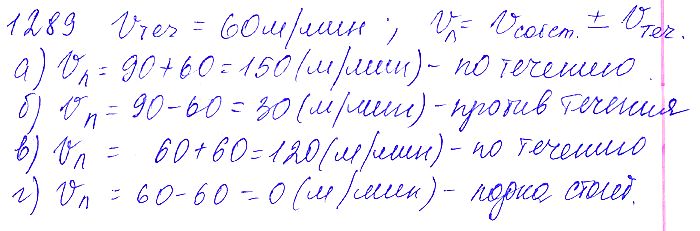 1289 Vтеч = 60 м/мин; Vл = Vсобст. ± Vтеч.
а) Vл = 90+60 = 150 (м/мин) - по течению.
б) Vл = 90-60 = 30 (м/мин) - против течения
в) Vл = 60+60 = 120 (м/мин) - по течению
г) Vл = 60-60 = 0 (м/мин) - лодка стоит.